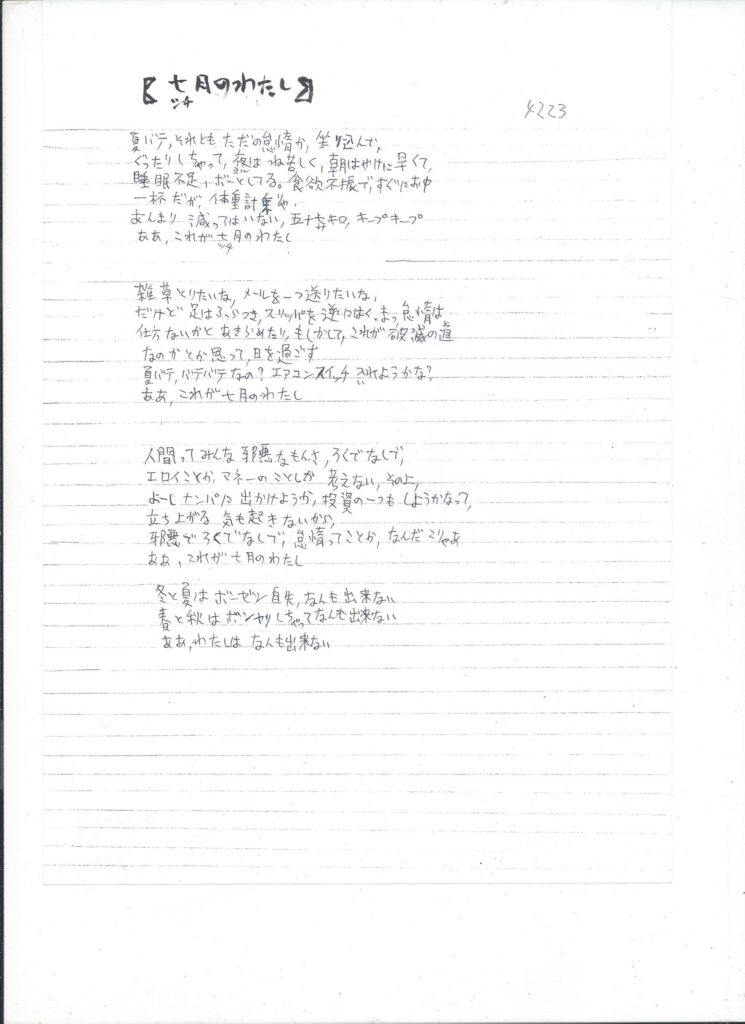 【七月のわたし】
シチ
4223
夏バテ,それとも ただの怠惰か,坐り込んで,
ぐったりしちゃって,夜はつね苦しく,朝はやけに早くて,
睡眠不足,ボーとしてる。食欲不振で,すぐにおなか
一杯だが,体重計乗や,
あんまり 減ってはいない,五十七キロ,キープキープ
ああ,これが七月のわたし
シチ
雑草とりたいな,メールを一つ送りたいな,
だけど 足はふらつき,スリッパを逆にはく,まっ 怠惰は
仕方ないかと あきらめたり,もしかして,これが破滅の道
なのかとか思って,日を過ごす
夏バテ,バテバテなの? エアコンスイッチ 入れようかな?
ああ,これが七月のわたし
人間ってみんな邪悪なもんさ,ろくでなしで,
エロイことか,マネーのことしか 考えない,その上,
よーしナンパに出かけようか,投資の一つもしようかなって,
立ち上がる 気も起きないから,
邪悪で ろくでなしで,怠惰ってことか,なんだこりゃあ
ああ,これが七月のわたし
冬と夏は ボーゼン自失,なんも出来ない
春と秋は ボンヤリしちゃってなんも出来ない
ああ,わたしは なんも出来ない